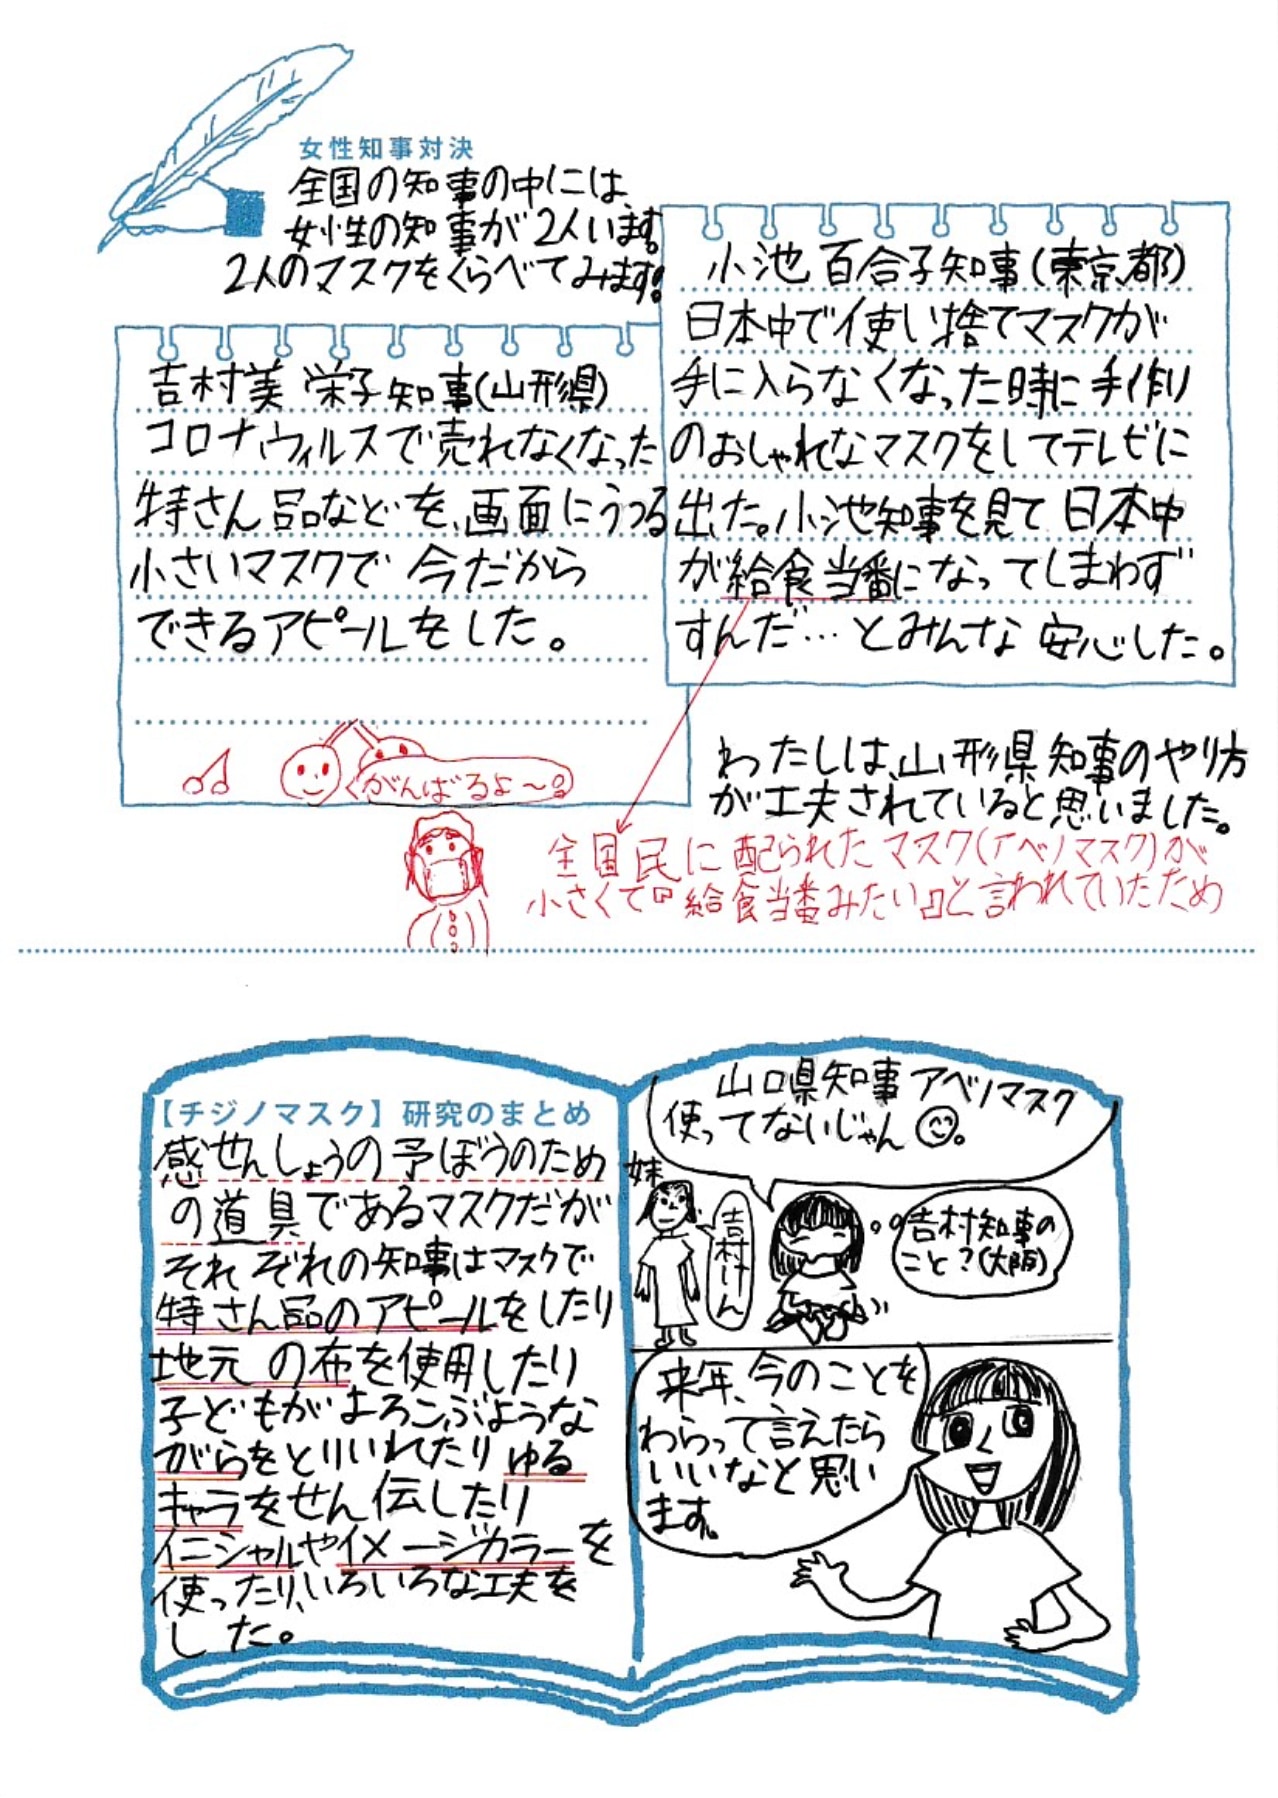 女性知事対決
全国の知事の中には、
女性の知事が2人います。
2人のマスクをくらべてみます!
吉村美栄子知事(山形県)
コロナウィルスで売れなくなった
特さん品などを、画面にうつる
小さいマスクで今だから
できるアピールをした。
がんばるよ~。
小池百合子知事(東京都)
日本中で使い捨てマスクが
手に入らなくなった時に手作り
のおしゃれなマスクをしてテレビに
出た。小池知事を見て日本中
が給食当番になってしまわず
すんだ…とみんな安心した。
わたしは、山形県知事のやり方
が工夫されていると思いました。
全国民に配られたマスク(アベノマスク)が
小さくて『給食当番みたい』と言われていたため
【チジノマスク】研究のまとめ
感せんしょうの予ぼうのため
の道具であるマスクだが
それぞれの知事はマスクで
特さん品のアピールをしたり
地元の布を使用したり
子どもがよろこぶような
がらをとりいれたりゆる
キャラをせん伝したり
イニシャルやイメージカラーを
使ったり、いろいろな工夫を
した。
山口県知事アベノマスク
使ってないじゃん。
妹
吉村けん
吉村知事の
こと?(大阪)
来年、今のことを
わらって言えたら
いいなと思い
ます。